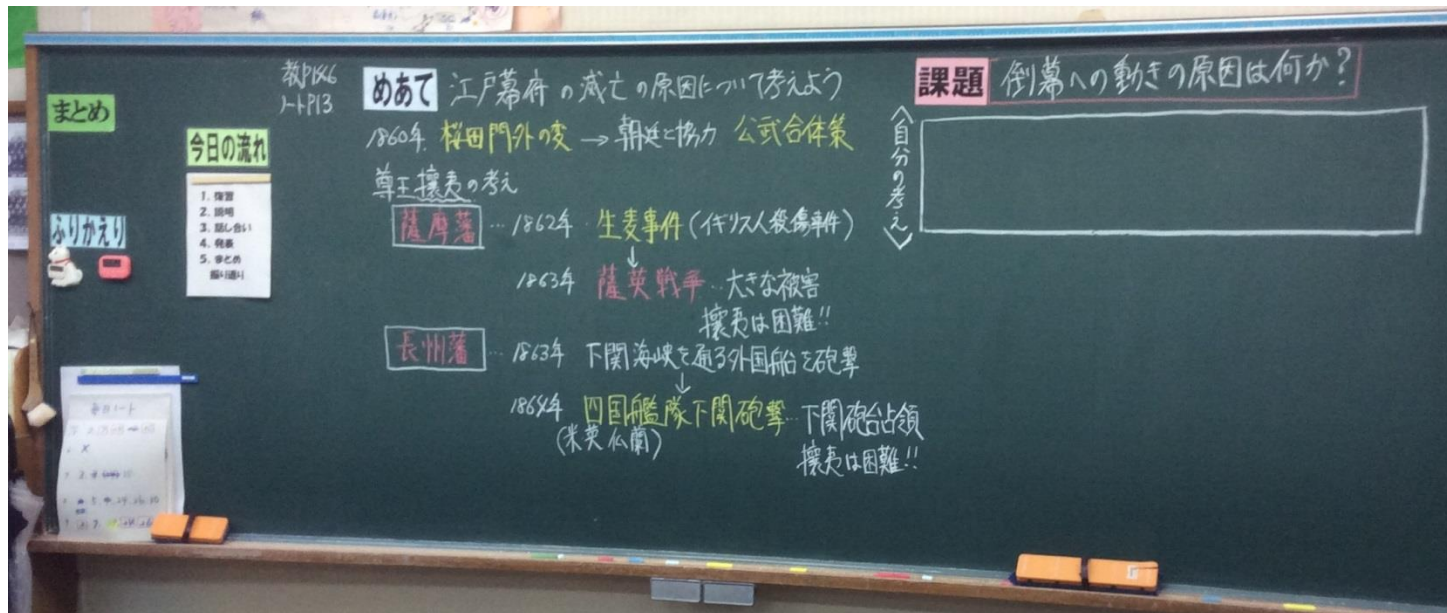 まとめ
ふりかえり
今日の流れ
1. 復習
2. 説明
3. 話し合い
4. 発表
5. まとめ
振り返り
教P186
ノートP13
めあて 江戸幕府の滅亡の原因について考えよう
1860年 桜田門外の変 → 朝廷と協力 公武合体策
尊王攘夷の考え
薩摩藩 … 1862年 生麦事件 (イギリス人殺傷事件)
↓
1863年 薩英戦争 … 大きな被害
攘夷は困難!!
長州藩 … 1863年 下関海峡を通る外国船を砲撃
↓
1864年 四国艦隊下関砲撃 … 下関砲台占領
(米英仏蘭) 攘夷は困難!!
課題 倒幕への動きの原因は何か?
<自分の考え>
毎日ノート